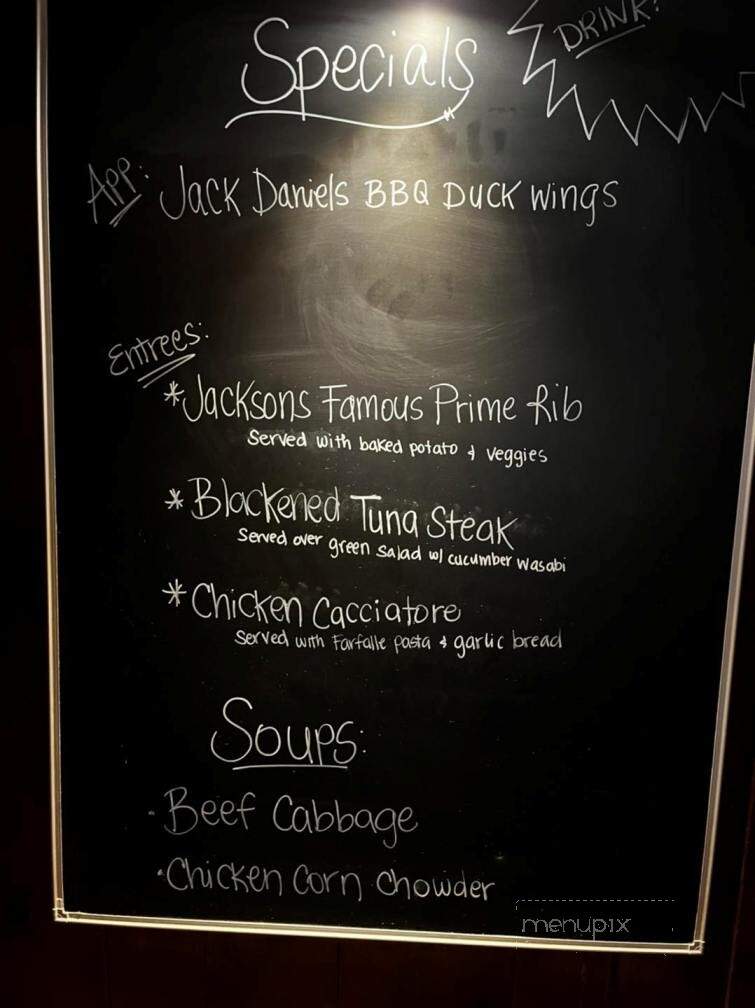 Specials
DRINK:
App: Jack Daniels BBQ Duck Wings
Entrees:
*Jacksons Famous Prime Rib
Served with baked potato & veggies
*Blackened Tuna Steak
Served over green salad w/ cucumber wasabi
*Chicken Cacciatore
Served with Farfalle pasta & garlic bread
Soups:
·Beef Cabbage
·Chicken Corn Chowder
menupix